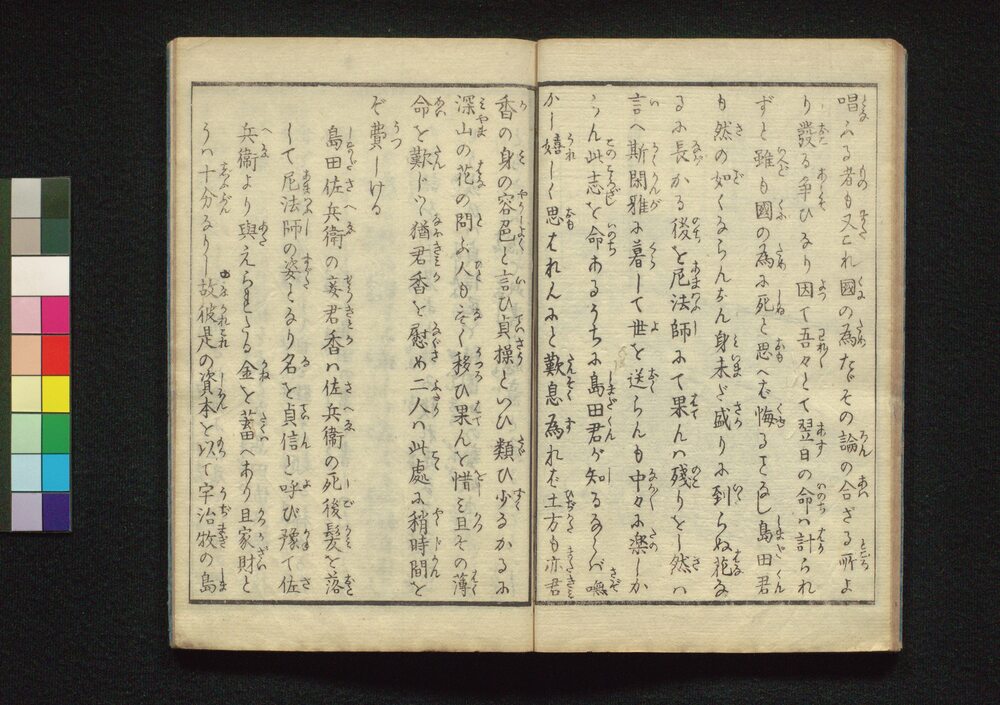 唱ふる者も又これ國の為たゞその論の合ざる所よ
り發る爭ひなり因て吾々とて翌日の命ハ計られ
ずと雖も國の為に死と思へバ悔ることなし島田君
も然の如くならんがん身未だ盛りに到らぬ花な
るに長かる後を尼法師にて果んハ殘りをし然ハ
言へ斯閑雅に暮して世を送らんも中々に樂しか
らん此志を命あるうちに島田君が知るならバ嘸
かし嬉しく思はれんにと歎息為れバ土方も亦君
香の身の容色と言ひ貞操といひ類ひ少なかるに
深山の花の問ふ人もなく移ひ果んを惜み且その薄
命を歎じつ猶君香を慰め二人ハ此處に稍時間を
ぞ費しける
島田佐兵衛の妾君香ハ佐兵衛の死後髮を落
して尼法師の姿となり名を貞信と呼び豫て佐
兵衛より與えられたる金を蓄へあり且家財と
うハ十分なりし故彼是の資本を以て宇治牧の島